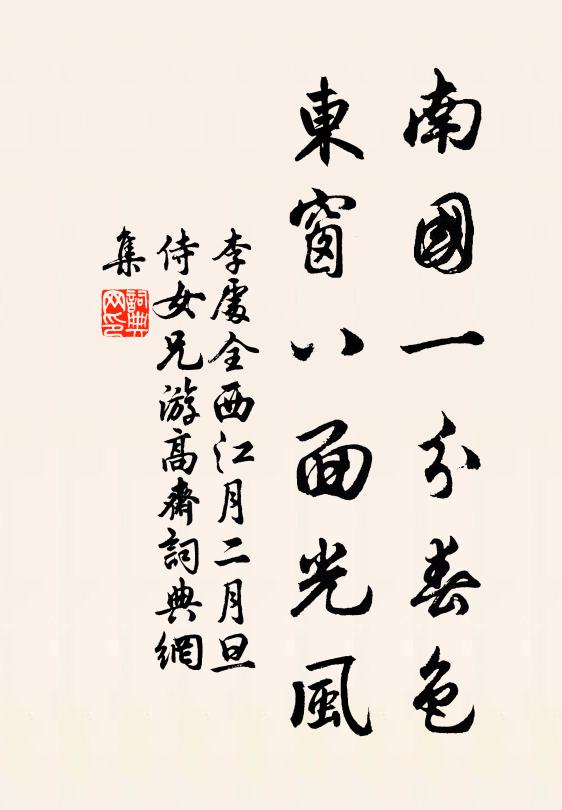 南國一分春色
東窗八面光風
李處全西江月二月旦
侍女兄游高齋詞典網
集
詞典
网印